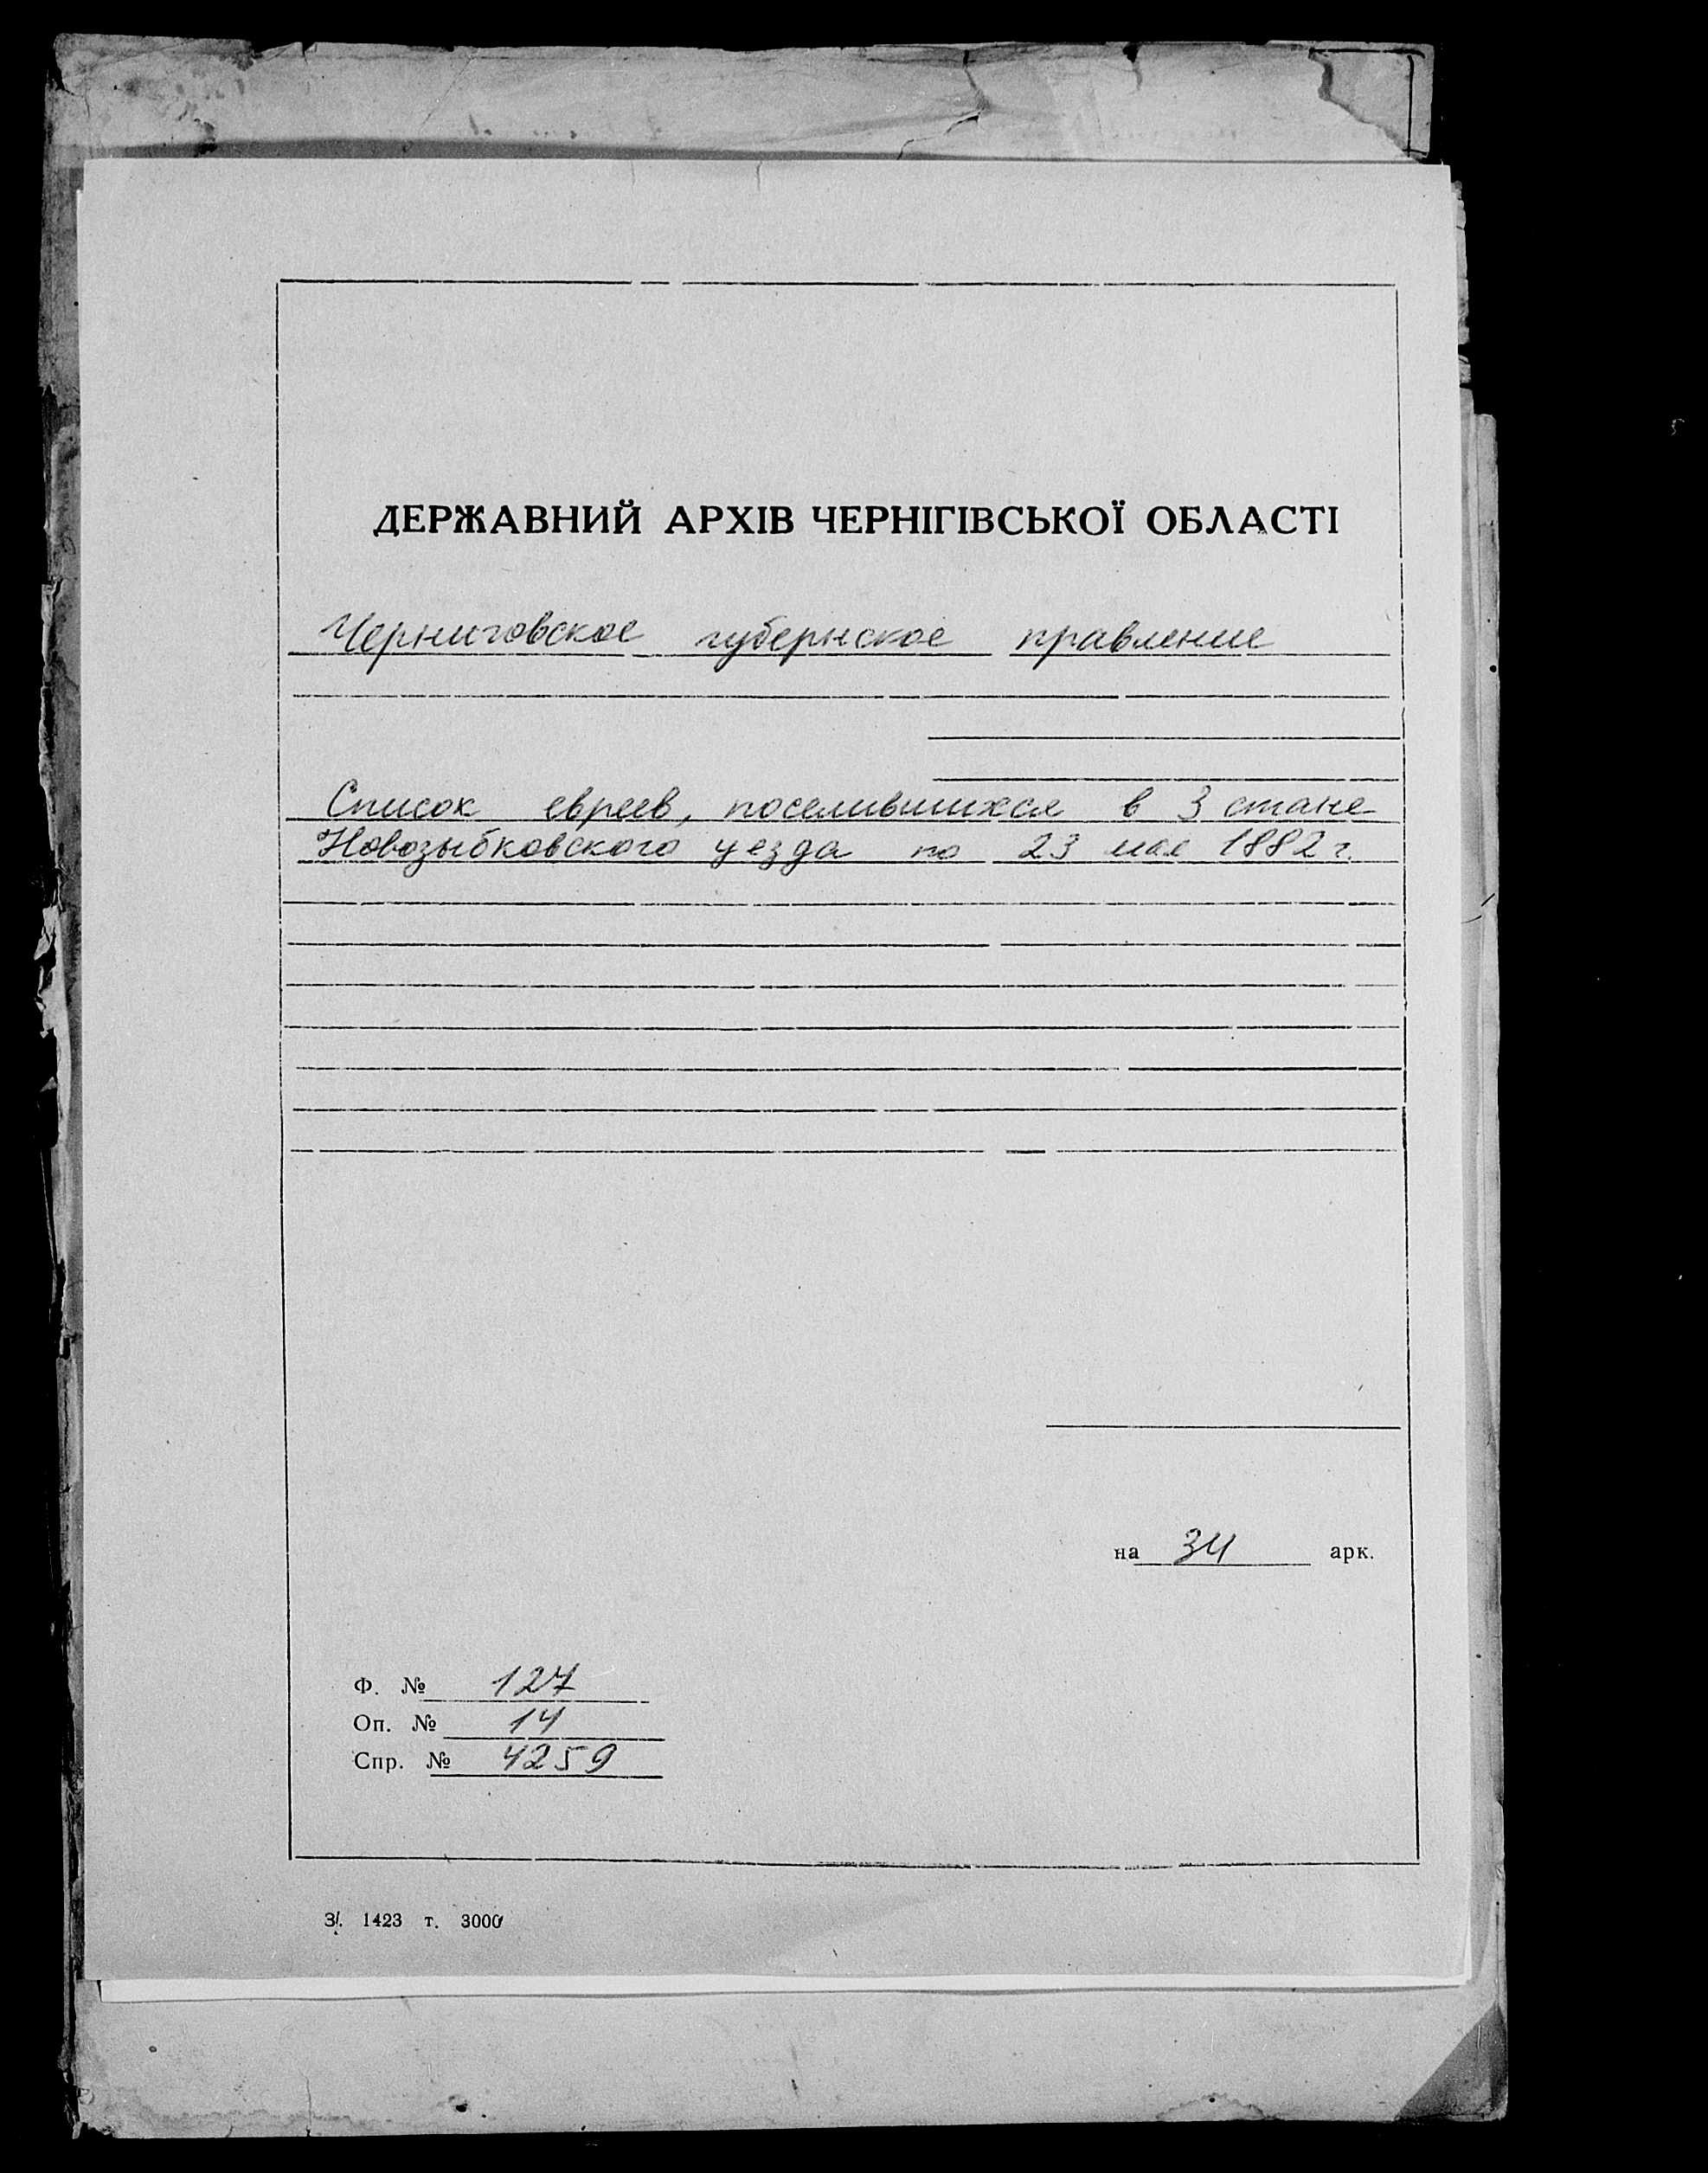 ДЕРЖАВНИЙ АРХІВ ЧЕРНІГІВСЬКОЇ ОБЛАСТІ
Черниговское губернское правление
Список евреев, поселившихся в 3 стане
Новозыбковского уезда по 23 мая 1882 г.
на 34 арк.
Ф. № 127
Оп. № 14
Спр. № 4259
З. 1423 т. 3000